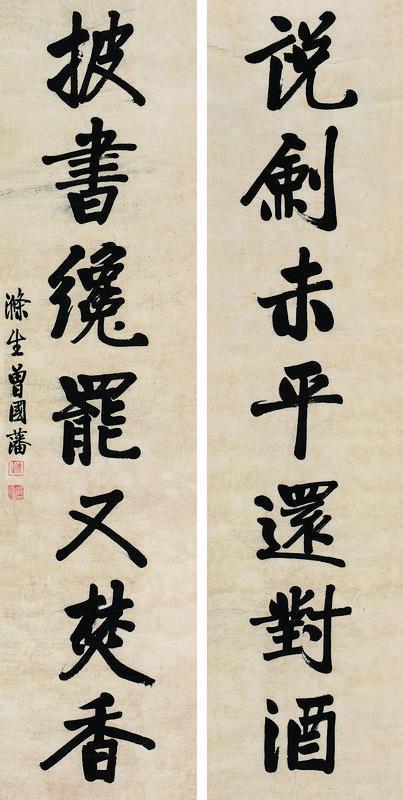 説劍未平還對酒
披書纔罷又焚香
滌生曾國藩